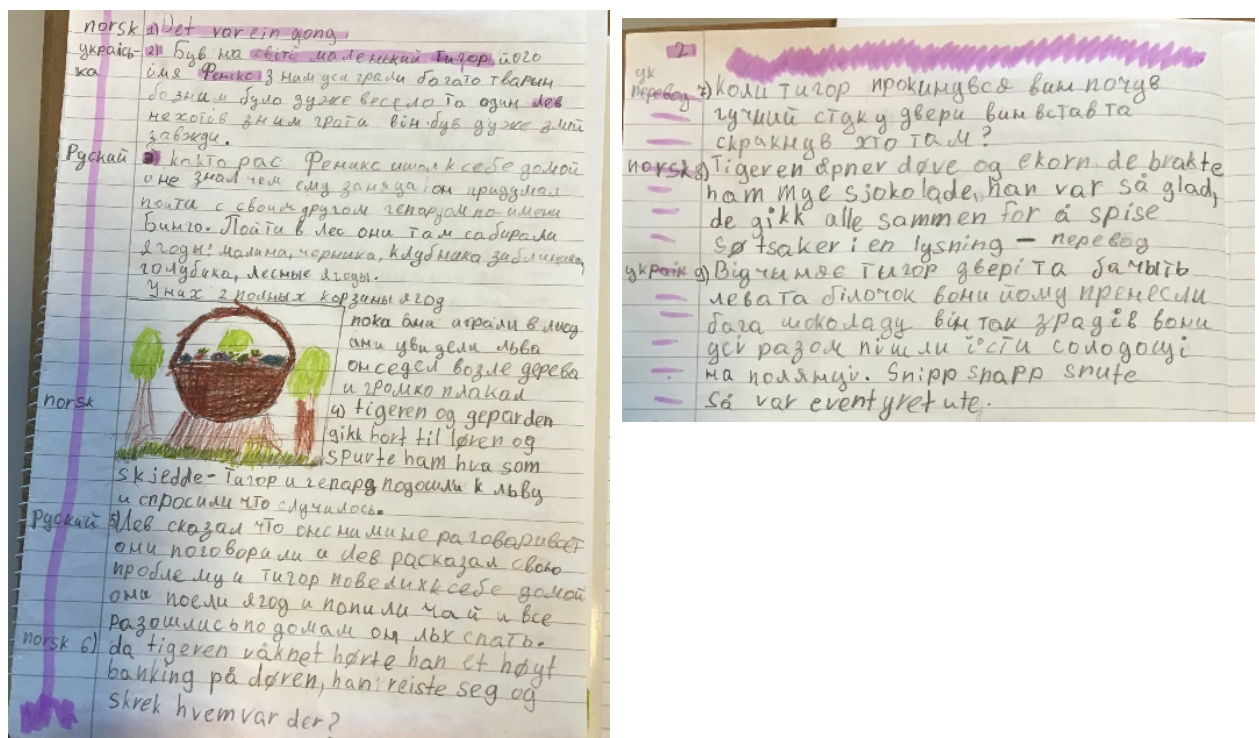 norsk 1) Det var ein gong
україсь- 2) Був на світі маленький тигор його
ка імя Феникс з ним уси грали багато тварын
бо зним було дуже весело та один лев
нехотів зним грата він був дуже злий
завжди.
Руский 3 както рас Феникс ишол к себе домой
и не знал чем ему заняца он придумал
пойти с своим другом гепардом по имени
Бинго. Пойти в лес они там сабирали
ягоды: малина, черника, клубника
голубика, лесные ягоды.
У них 2 полных корзины ягод
пока они играли в лису
они увидели льва
он седел возле дерева
и громко плакал
norsk 4) tigeren og geparden
gikk bort til løven og
spurte ham hva som
skjedde - Тигор и гепард подошли к льву
и спросили что случилось.
Руский 5) Лев сказал что он снимине разговаривает
они поговорили и лев расказал свою
проблему и тигор повел их к себе домой
они поели ягод и попили чай и все
разошлись по домам спать.
norsk 6) da tigeren våknet hørte han et høyt
banking på døren, han reiste seg og
skrek hvem var der?
2
ук
перевод 7) Коли тигор прокинувся вин почув
гучний стук у двери вин встав та
скракнув хто там?
norsk 8) Tigeren åpner døve og ekorn de brakte
ham mye sjokolade, han var så glad,
de gikk alle sammen for å spise
søtsaker i en lysning – перевод
україн 9) Відчиняє тигор двері та бачыть
лева та білочок вони йому пренесли
бага шоколаду він так зрадів вони
усі разом пішли їсти солодощі
на полянці. Snipp snapp snute
så var eventyret ute.